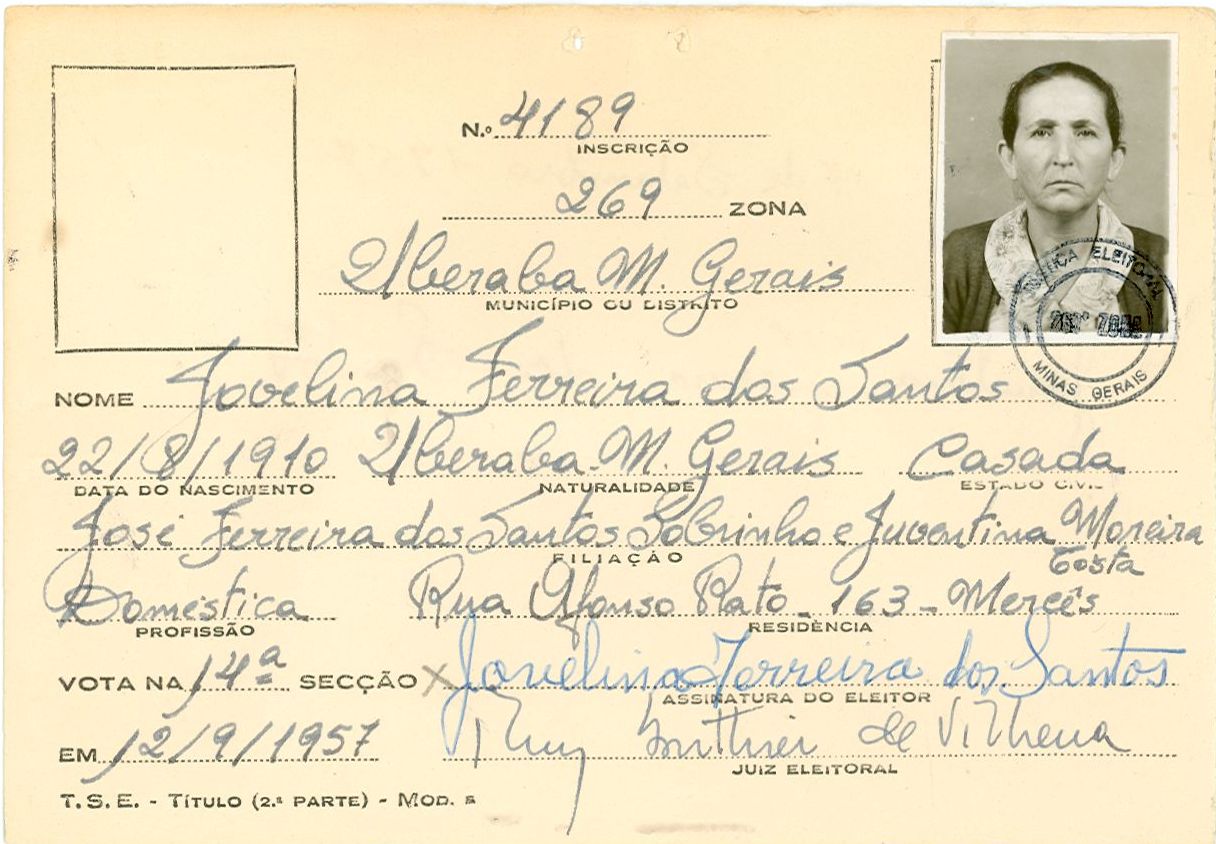 N.º 4189
INSCRIÇÃO
269 ZONA
Uberaba M. Gerais
MUNICÍPIO OU DISTRITO
JUSTIÇA ELEITORAL
MINAS GERAIS
NOME Jovelina Ferreira dos Santos
22/8/1910 Uberaba - M. Gerais Casada
DATA DO NASCIMENTO NATURALIDADE ESTADO CIVIL
José Ferreira dos Santos Sobrinho e Juventina Moreira
Costa
FILIAÇÃO
Doméstica Rua Afonso Rato - 163 - Mercês
PROFISSÃO RESIDÊNCIA
VOTA NA 14ª SECÇÃO X Jovelina Ferreira dos Santos
ASSINATURA DO ELEITOR
EM 12/9/1957 de Vilhena
JUIZ ELEITORAL
T. S. E. - TÍTULO (2.ª PARTE) - MOD. 5